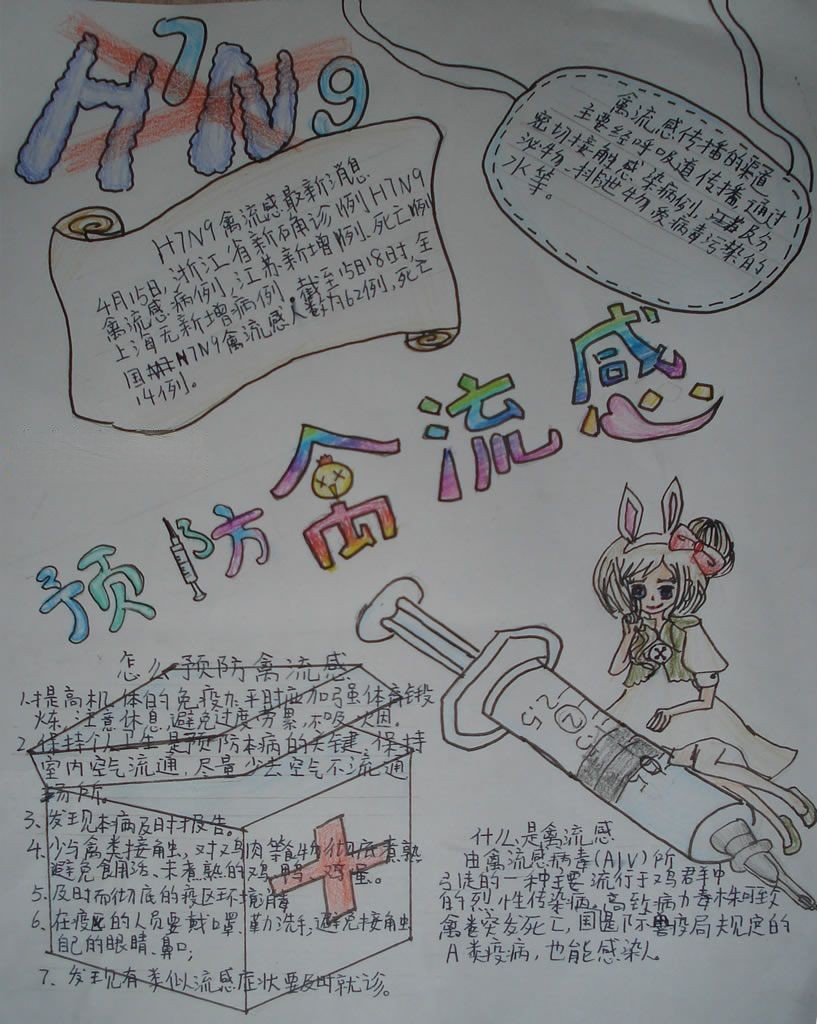 H7N9
H7N9禽流感最新消息
4月15日，浙江省新确诊1例H7N9
禽流感病例，江苏新增1例，死亡1例
上海无新增病例，截至15日18时，全
国H7N9禽流感人数为62例，死亡
14例。
禽流感传播的渠道
主要经呼吸道传播，通过
密切接触感染病例，及分
泌物、排泄物，受病毒污染的
水等。
预防禽流感
怎么预防禽流感
1.提高机体的免疫力，平时应加强体育锻
炼，注意休息，避免过度劳累，不吸烟。
2、保持个卫生是预防本病的关键，保持
室内空气流通，尽量少去空气不流通
场所。
3、发现本病及时报告。
4、少与禽类接触，对鸡肉等食物彻底煮熟
避免食用活、未煮熟的鸡、鸭、鸡蛋。
5、及时而彻底的疫区环境
6、在疫区的人员要戴口罩，勤洗手，避免接触
自己的眼睛、鼻、口；
7、发现有类似流感症状要及时就诊。
什么是禽流感
由禽流感病毒(AIV)所
引徒的一种主要流行于鸡群中
的烈性传染病。高致病力毒株可致
禽类突发死亡，国是际兽疫局规定的
A类疫病，也能感染人。